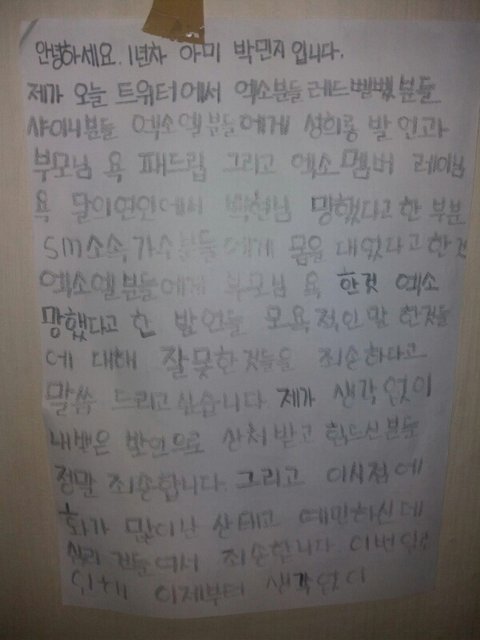 안녕하세요. 1년차 아미 박민지 입니다.
제가 오늘 트위터에서 엑소분들 레드벨벳분들
샤이니분들 엑소엘분들에게 성희롱 발언과
부모님 욕 패드립 그리고 엑소멤버 레이님
욕 달의연인에서 백현님 망했다고 한 부분
SM소속가수분들에게 몸을 대었다고 한것
엑소엘분들에게 부모님 욕 한것 엑소
망했다고 한 발언들 모욕적인말 한것들
에 대해 잘못한것들을 죄송하다고
말씀 드리고싶습니다. 제가 생각없이
내뱉은 발언으로 상처받고 힘드신분들
정말 죄송합니다. 그리고 이시점에
화가 많이난 상태고 예민하신데
건들여서 죄송합니다. 이번
이제부터 생각없이